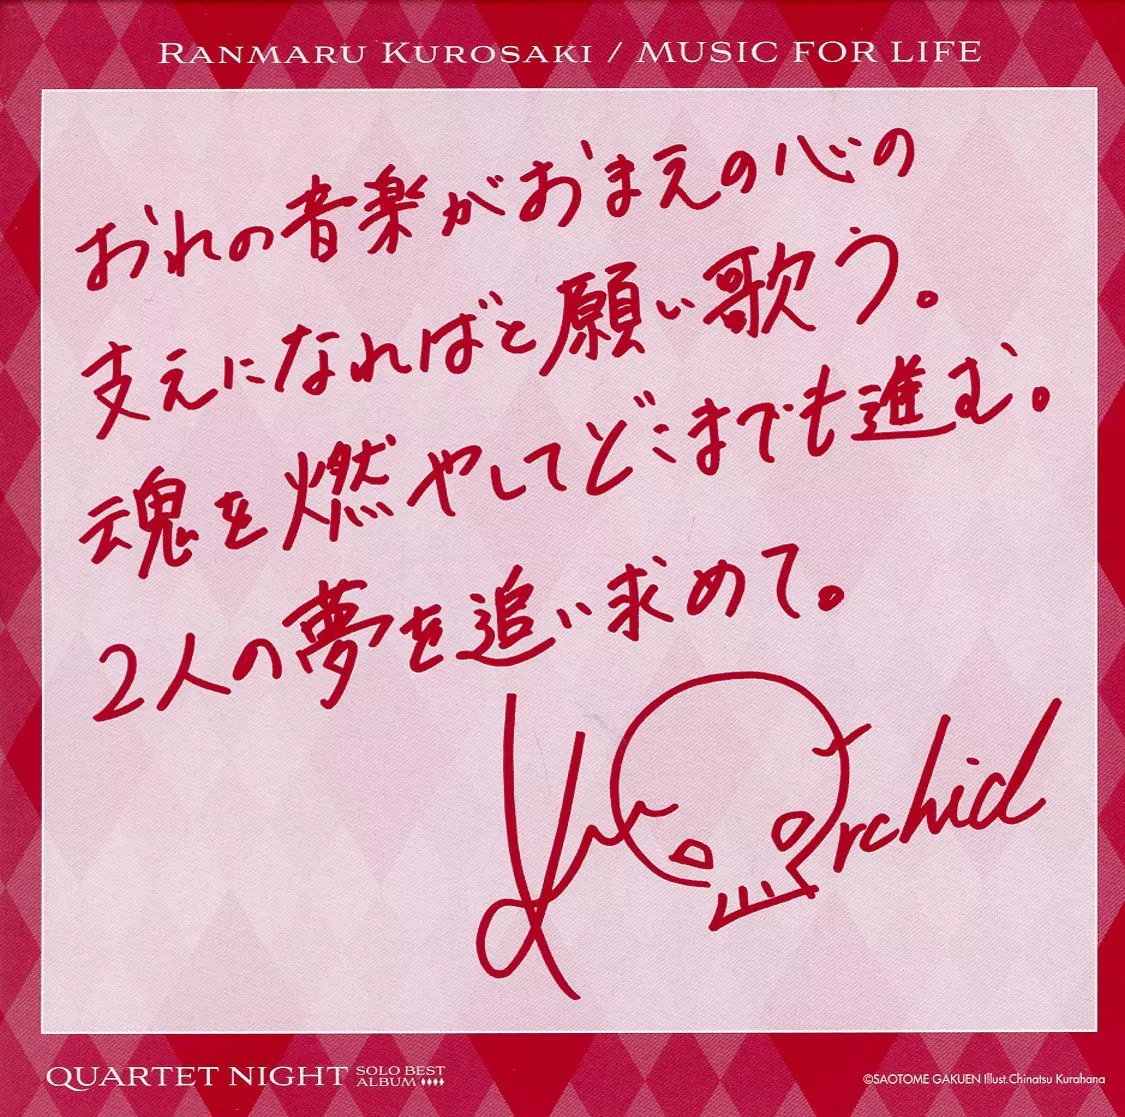 RANMARU KUROSAKI / MUSIC FOR LIFE
おれの音楽がおまえの心の
支えになればと願い歌う。
魂を燃やしてどこまでも進む。
2人の夢を追い求めて。
Orchid
QUARTET NIGHT SOLO BEST ALBUM
©SAOTOME GAKUEN Illust.Chinatsu Kurahana